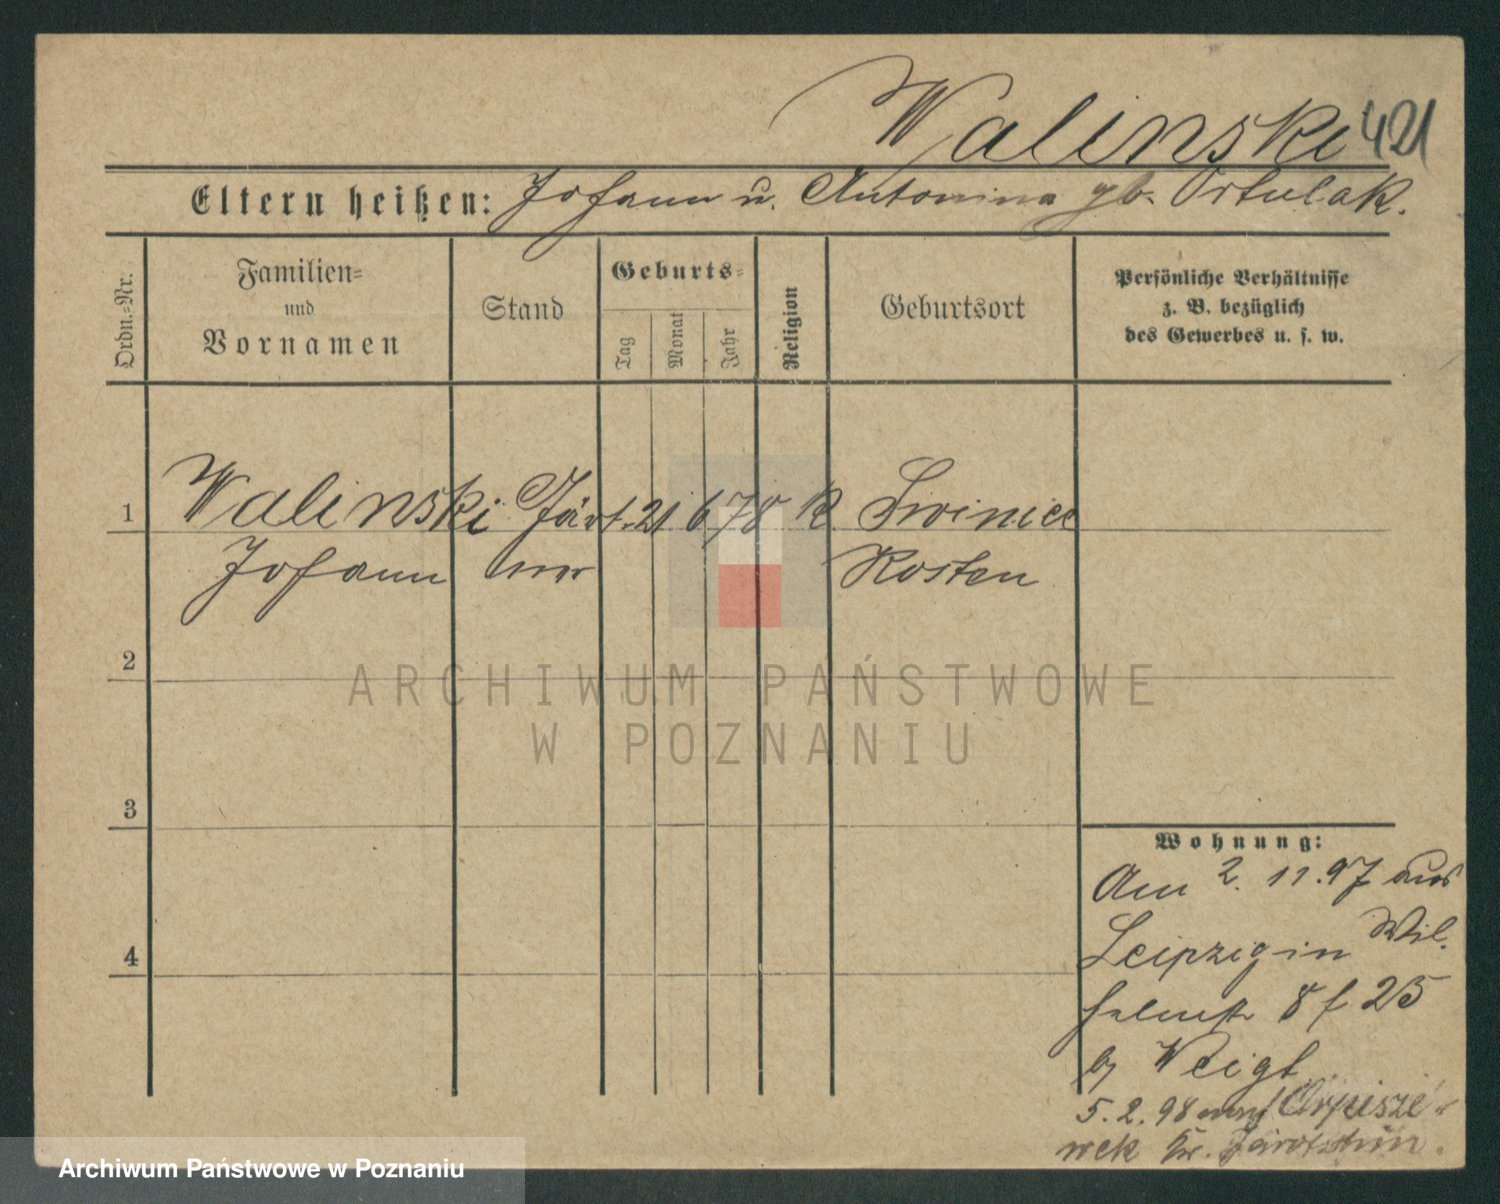 Walinski 421
Eltern heißen: Johann u. Antonina gb. Ortulak.
Ordn.-Nr.
Familien-
und
Vornamen
Stand
Geburts-
Tag
Monat
Jahr
Religion
Geburtsort
Persönliche Verhältnisse
z. B. bezüglich
des Gewerbes u. s. w.
1 Walinski Gärt- 21 6 78 K
Johann ner Kosten
2
ARCHIWUM PAŃSTWOWE
W POZNANIU
3
4
Wohnung:
Am 2. 11. 97 aus
Leipzig in Wil-
helmstr 8 f 25
b/ Veigt
5. 2. 98 nach
wek Kr. Jarotschin.
Archiwum Państwowe w Poznaniu